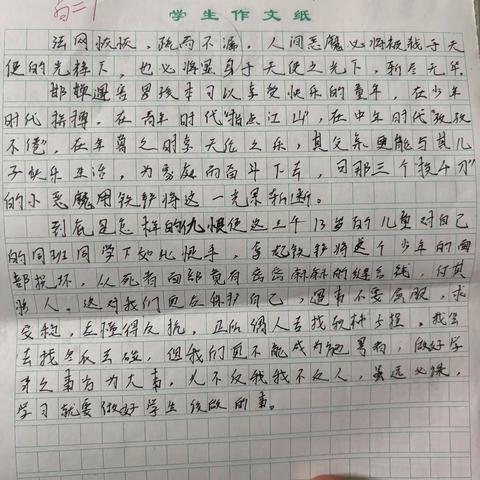 学生作文纸
法网恢恢，疏而不漏，人间恶魔必将被我于天
使的光辉下，也必将显身于天使之光下，斩尽光华
邯郸遇害男孩本可以享受快乐的童年，在少年
时代拼搏，在青年时代"指点江山"，在中年时代"孜孜
不倦"，在年尊之时享天伦之乐，其父亲更能与其儿
子快乐生活，为家庭而奋斗下去，可那三个挨千刀
的小恶魔用铁铲将这一光景斩断。
到底是怎样的仇恨使这三个13岁的儿童对自己
的同班同学下如此狠手，拿起铁铲将这个少年的面
部损坏，从死者面部竟有密密麻麻的缝合线，何其
骇人。这对我们更应保护自己，遇事不要屈服，求
支构，应懂得反抗，正所谓人去找软柿子捏，我会
去找合反去碰，但我们更不能成为施暴者，做好学
生之事方为大事，人不反我我不反人，虽远必诛，
学习就要做好学生该做的事。